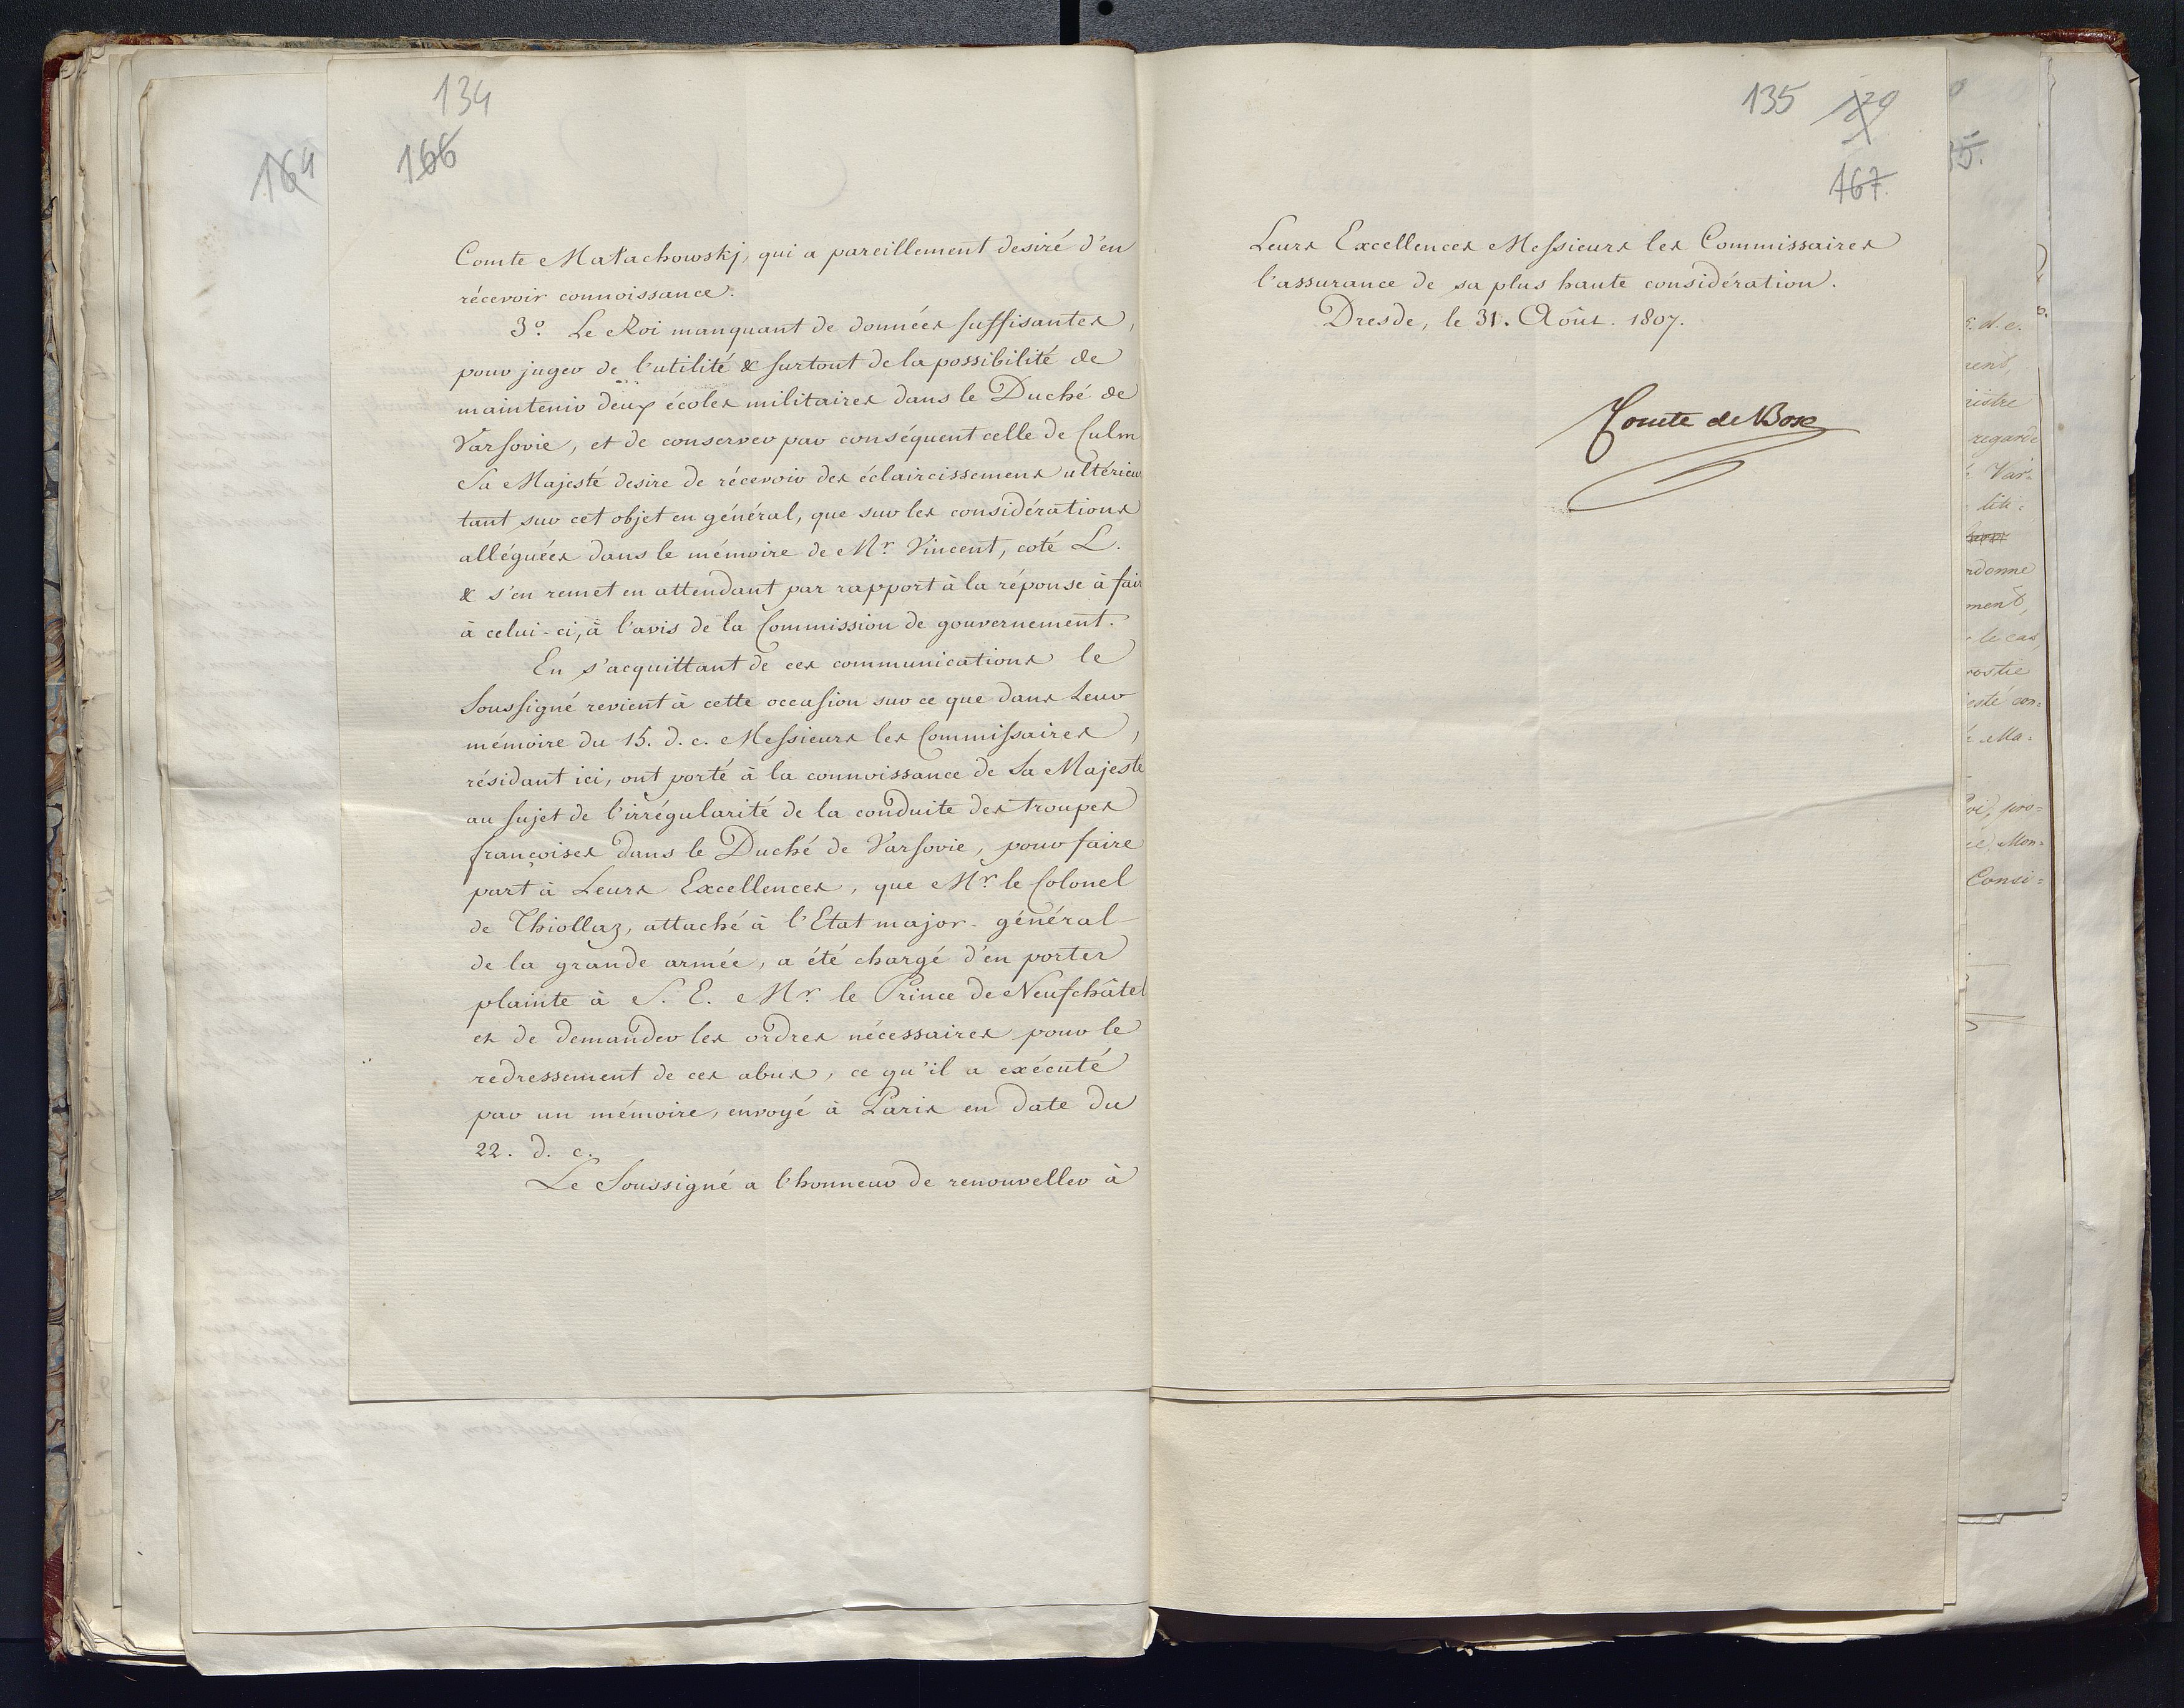 134
166
164
Comte Małachowskj, qui a pareillement desiré d'en
récevoir connoissance.
3º. Le Roi manquant de données suffisantes,
pour juger de l'utilité & surtout de la possibilité de
maintenir deux écoles militaires dans le Duché de
Varsovie, et de conserver par conséquent celle de Culm
Sa Majesté desire de récevoir des éclaircissemens ultérieu
tant sur cet objet en général, que sur les considérations
alléguées dans le mémoire de Mr. Vincent, coté L.
& s'en remet en attendant par rapport à la réponse à fair
à celui-ci, à l'avis de la Commission de gouvernement.
En s'acquittant de ces communications le
Soussigné revient à cette occasion sur ce que dans Leur
mémoire du 15. d. c. Messieurs les Commissaires,
résidant ici, ont porté à la connoissance de Sa Majesté
au sujet de l'irrégularité de la conduite des troupes
françoises dans le Duché de Varsovie, pour faire
part à Leurs Excellences, que Mr. le Colonel
de Thiollaz, attaché à l'Etat major-général
de la grande armée, a été chargé d'en porter
plainte à S. E. Mr. le Prince de Neufchâtel
et de demander les ordres nécessaires pour le
redressement de ces abus, ce qu'il a exécuté
par un mémoire, envoyé à Paris en date du
22. d. c.
Le Soussigné a l'honneur de renouveller à
135
167.
Leurs Excellences Messieurs les Commissaires
l'assurance de sa plus haute considération.
Dresde, le 31. Août. 1807.
Comte de Bose
5.
d. c.
rend,
nistre
regarde
Var=
rdonne
ment,
le cas,
rostie
esté con=
Ma=
pro=
Mon=
Consi=